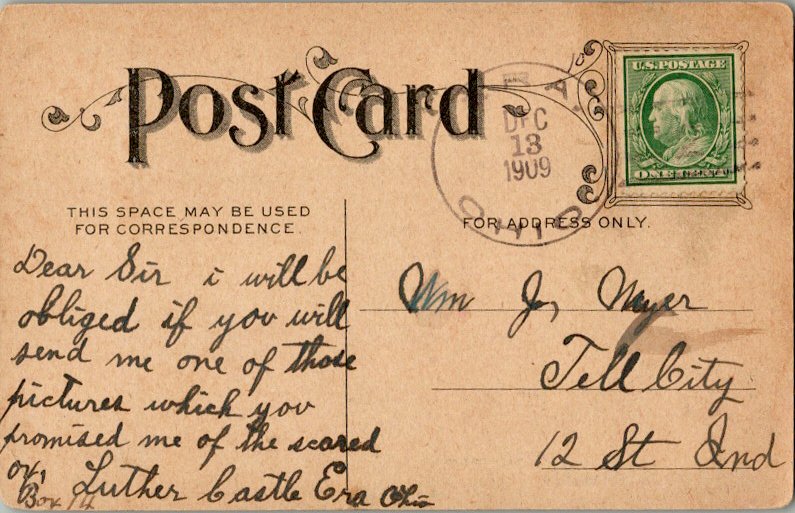 Post Card
ERA.
DEC
13
1909
OHIO
U.S. POSTAGE
ONE CENT
THIS SPACE MAY BE USED
FOR CORRESPONDENCE.
FOR ADDRESS ONLY.
Dear Sir i will be
obliged if you will
send me one of those
pictures which you
promised me of the scared
ox,
Luther Castle Era Ohio
Box 14
Wm J, Meyer
Tell City
12 St Ind